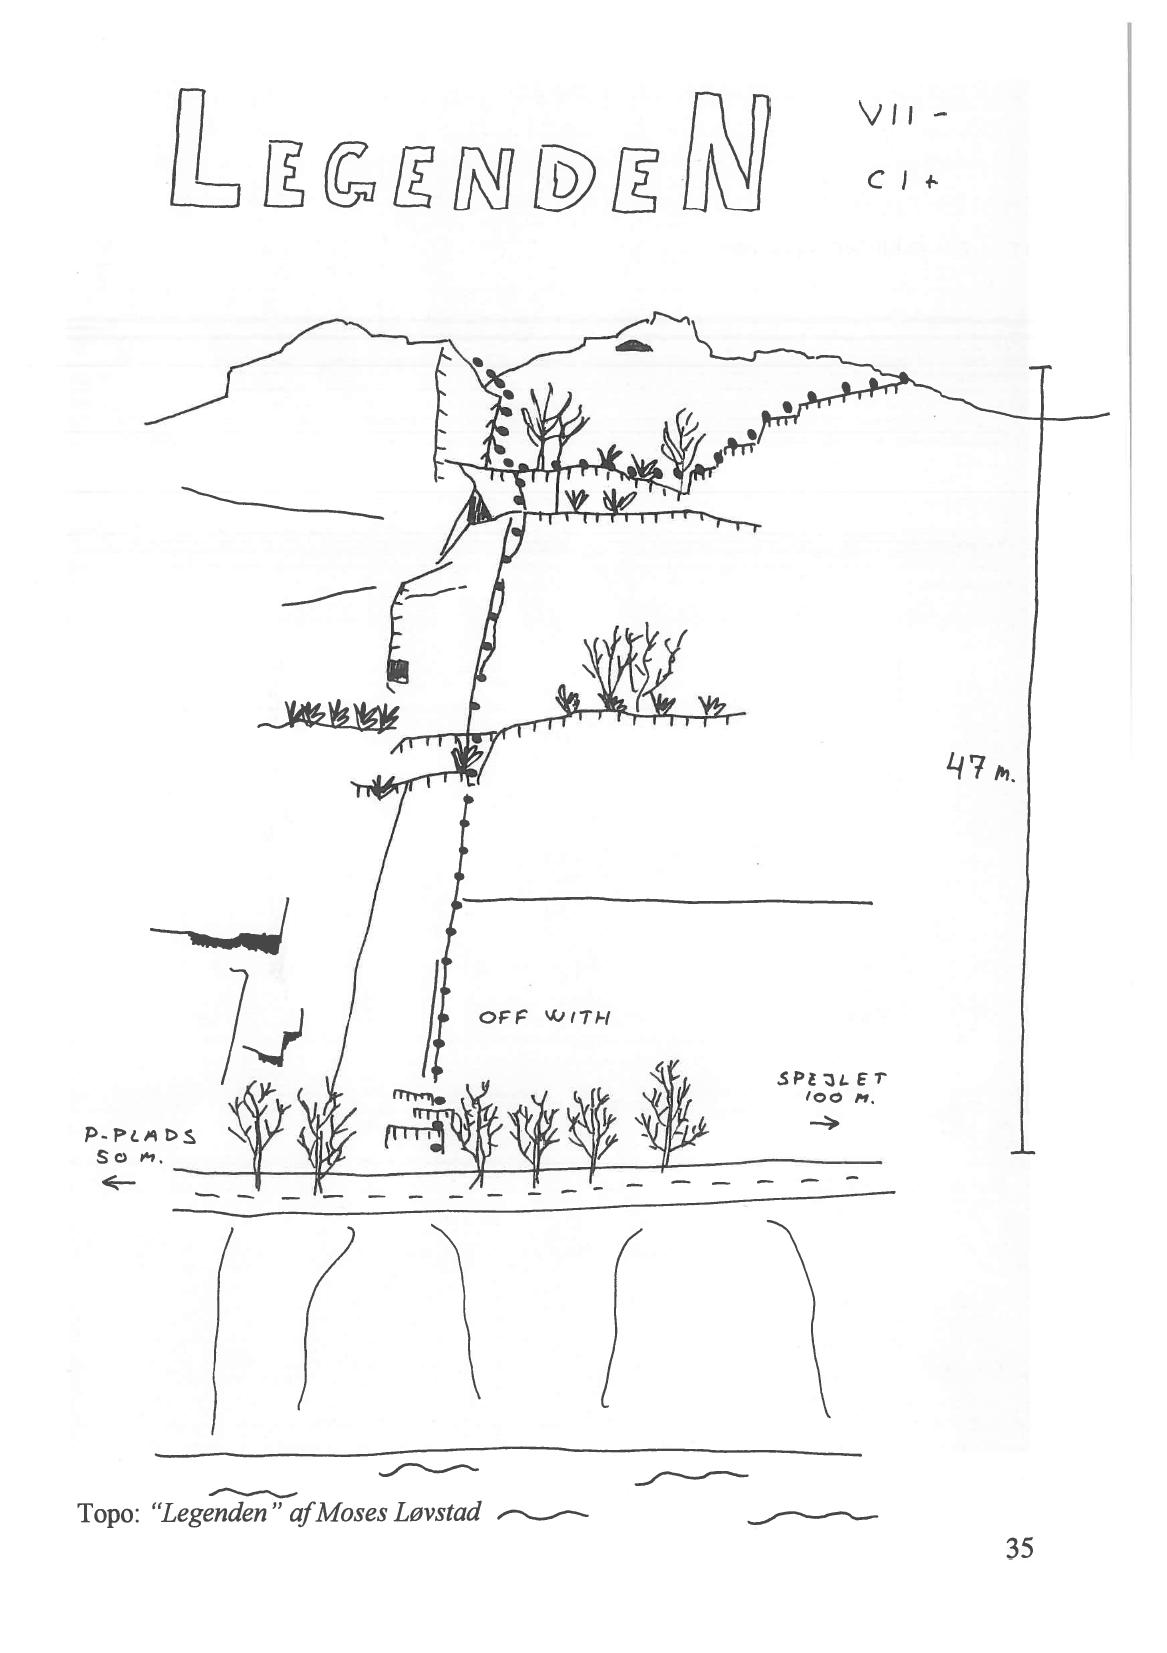 LEGENDEN
VII -
C I +
47 m.
OFF WITH
SPEJLET
100 M.
→
P-PLADS
50 M.
←
Topo: “Legenden” af Moses Løvstad
35